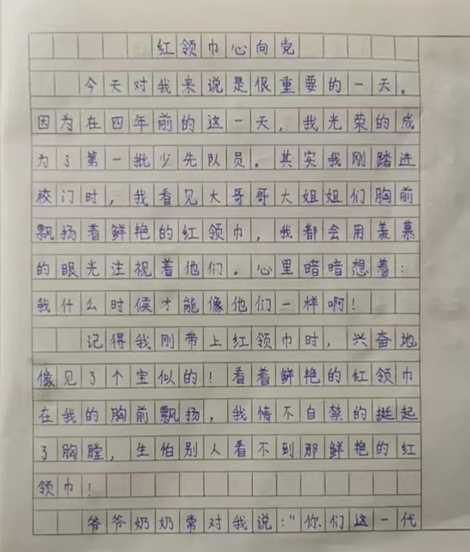 红领巾心向党
今天对我来说是很重要的一天。
因为在四年前的这一天，我光荣的成
为了第一批少先队员。其实我刚踏进
校门时，我看见大哥哥大姐姐们胸前
飘扬着鲜艳的红领巾，我都会用羡慕
的眼光注视着他们。心里暗暗想着：
我什么时侯才能像他们一样啊！
记得我刚带上红领巾时，兴奋地
像见了个宝似的！看着鲜艳的红领巾
在我的胸前飘扬，我情不自禁的挺起
了胸膛，生怕别人看不到那鲜艳的红
领巾！
爷爷奶奶常对我说：“你们这一代